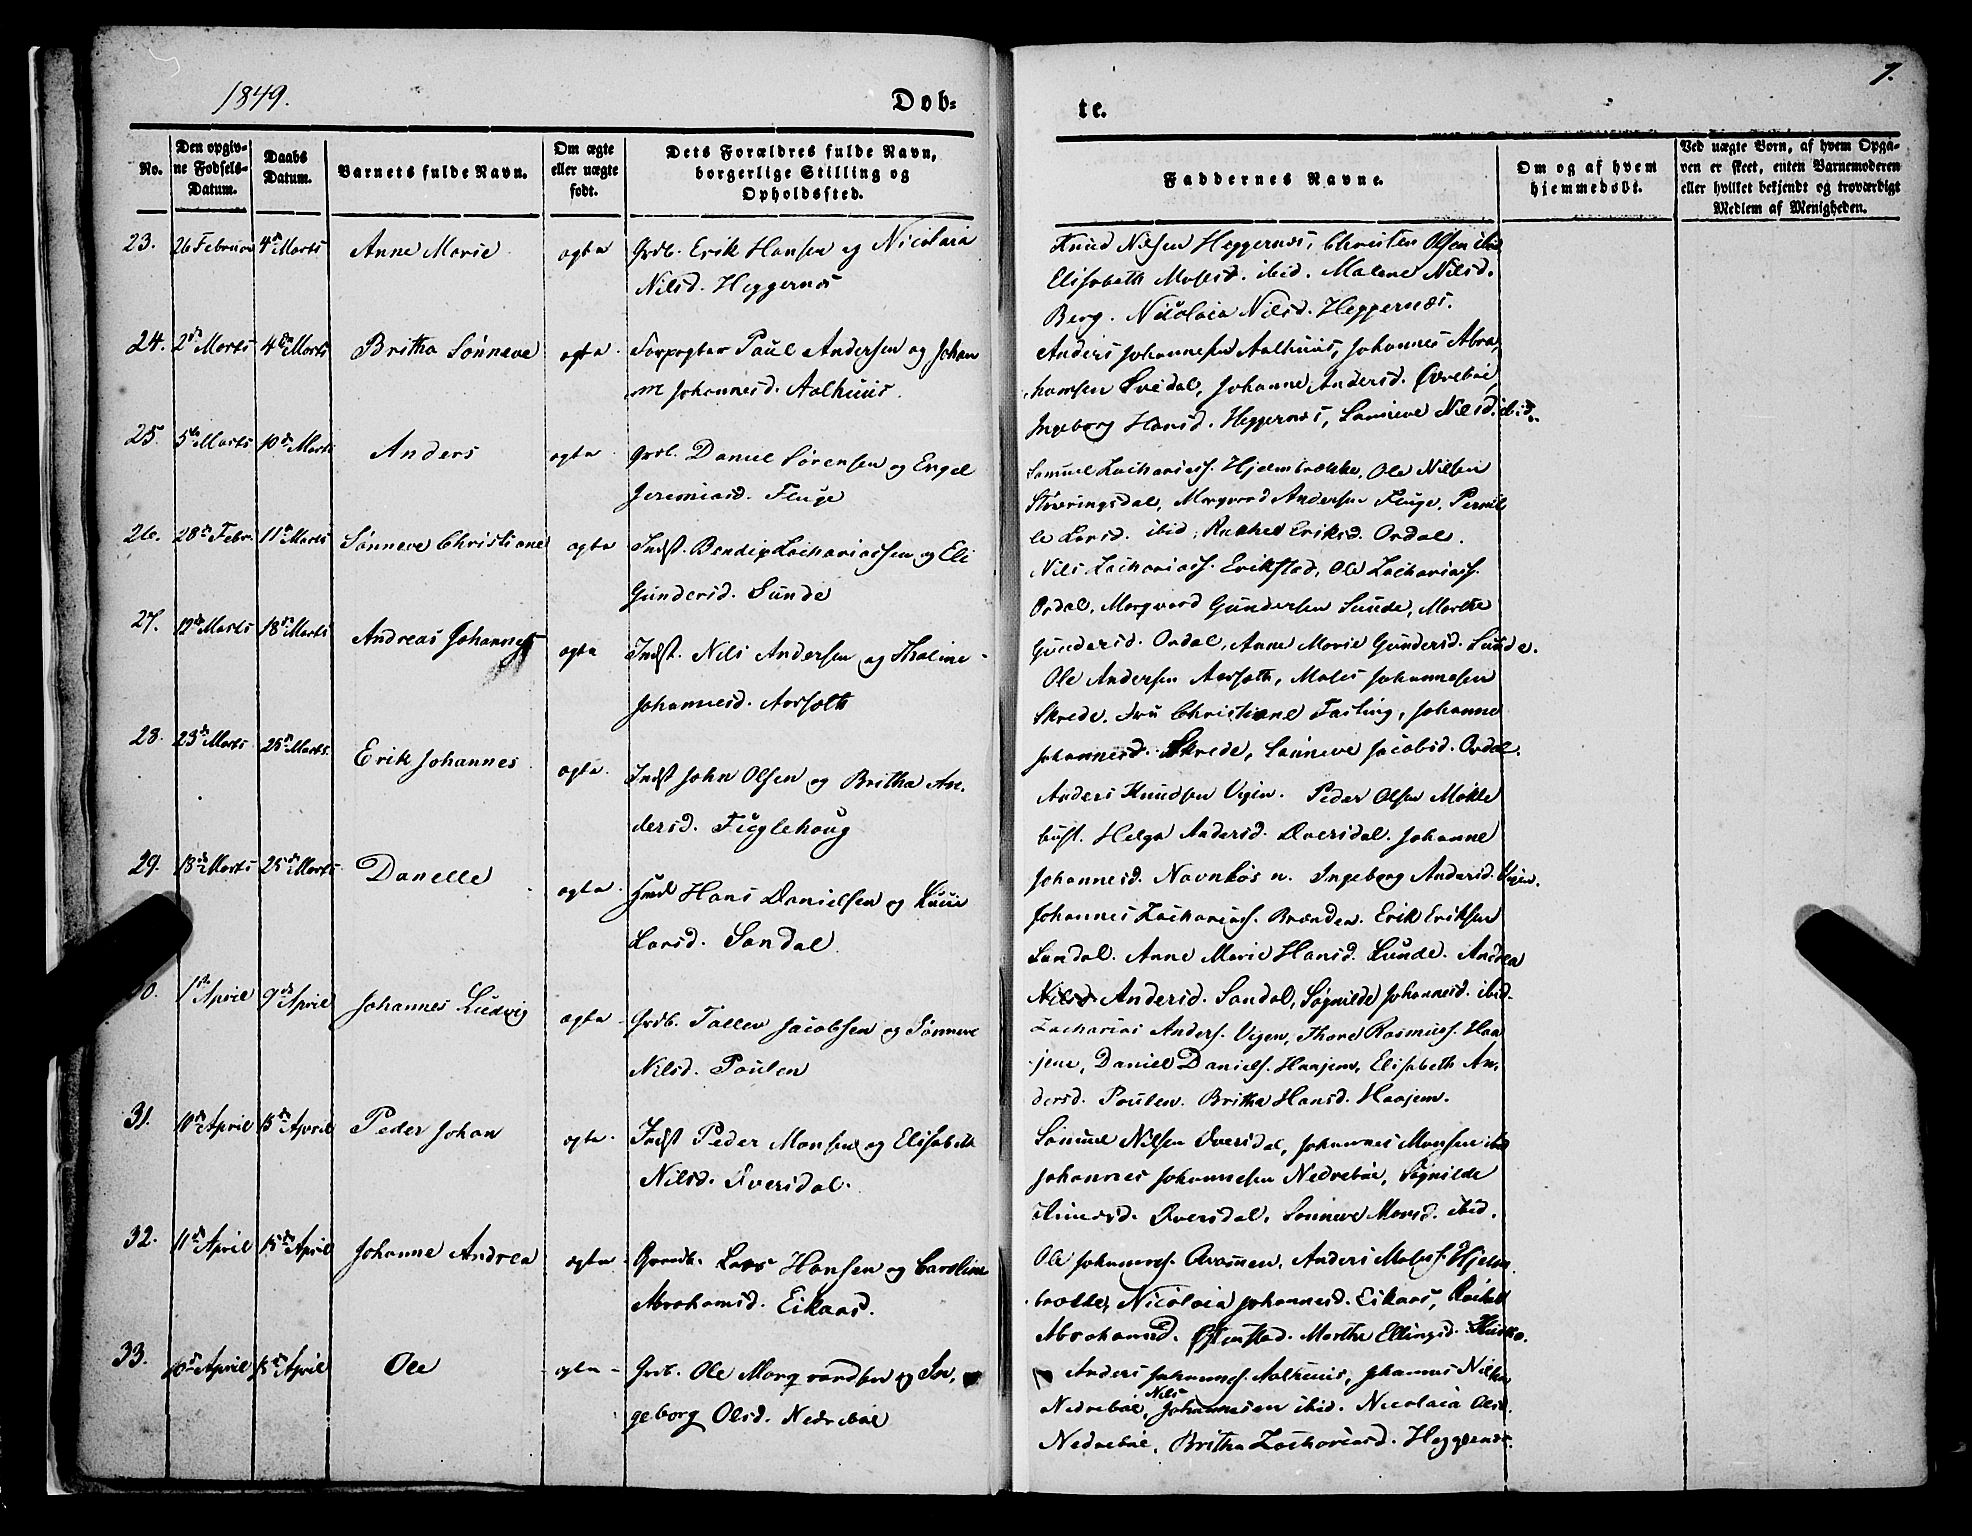 1849.
Døb-
te.
7.
No.
Den opgiv-
ne Fødsels-
Datum.
Daabs
Datum.
Barnets fulde Navn.
Om ægte
eller uægte
født.
Dets Forældres fulde Navn,
borgerlige Stilling og
Opholdssted.
Faddernes Navne.
Om og af hvem
hjemmedøbt.
Ved uægte Børn, af hvem Opgi-
ven er skeet, enten Barnemoderen
eller hvilket bekjendt og troværdigt
Medlem af Menigheden.
23. 26 Februar 4de Marts Anne Marie ægte Grdb. Erik Hansen og Nicolaia
Nilsd. Heggernæs
Knud Nilsen Heggernæs, Christen Olsen ibid
Elisabeth Molesd. ibid. Malene Nilsd.
Berg. Nicolaia Nilsd. Heggernæs.
24. 2den Marts 4de Marts Britha Sønneve ægte Forpagter Paul Andersen og Johan
ne Johannesd. Aalhuus.
Anders Johannesen Aalhuus, Johannes Abra
hamsen Svidal, Johanne Andersd. Øvrebøe,
Ingeborg Hansd. Heggernæs, Sønneve Nilsd. ibid.
25. 5te Marts 10de Marts Anders ægte Grdb. Daniel Sørensen og Engel
Jeremiasd. Fluge
Samuel Zachariass. Hjelmbrække, Ole Nilsen
Støvringsdal, Margvard Andersen Fluge, Pernil
le Larsd. ibid, Rachel Eriksd. Ordal.
26. 28de Febr. 11te Marts Sønneve Christiane ægte Indst. Bendix Zachariassen og Eli
Gundersd. Sunde
Nils Zachariass. Erikstad, Ole Zachariass.
Ordal, Margvard Gundersen Sunde, Marthe
Gundersd. Ordal, Anne Marie Gundersd. Sunde.
27. 12te Marts 18de Marts Andreas Johannes ægte Indst. Nils Andersen og Thaline
Johannesd. Aarseth
Ole Andersen Aarseth, Moles Johannesen
Skrede. Fru Christiane Fasting, Johanne
Johannesd. Skrede, Sønneve Jacobsd. Ordal.
28. 23de Marts 25de Marts Erik Johannes ægte Indst John Olsen og Britha An-
dersd. Fuglehoug
Anders Knudsen Vigen. Peder Olsen Mokle
bust. Helga Andersd. Dversdal. Johanne
Johannesd. Navnkøs n. Ingeborg Andersd. Vigen.
29. 18de Marts 25de Marts Danelle ægte Hans Danielsen og
Larsd. Sandal
Johannes Zachariass. Brænden. Erik Eriksen
Sandal. Anne Marie Hansd. Lunde. Andrea
Nilsd Andersd. Sandal, Søgnilde Johannesd. ibid.
0. 1ste April 9de April Johannes Ludvig ægte Grdb. Tollev Jacobsen og Sønneve
Nilsd. Paulen
Zacharias Anders. Vigen, Thore Rasmuss. Haa
jem, Daniel Daniels. Haajem, Elisabeth An-
dersd. Paulen. Britha Hansd. Haajem.
31. 10de April 15de April Peder Johan ægte Indst Peder Monsen og Elisabeth
Nilsd. Dversdal.
Samuel Nilsen Dversdal, Johannes Monsen ibid
Johannes Johannesen Nedrebøe, Søgnilde
Simonsd. Dversdal, Sønneve Monsd. ibid.
32. 11te April 15de April Johanne Andrea ægte Grdb. Lars Hansen og Caroline
Abrahamsd. Eikaas.
Ole Johanness. Aramen, Anders Moless. Hjelm
brække, Nicolaia Johannesd. Eikaas, Rachel
Abrahamsd. Øfenstad. Marthe Ellingsd.
33. 10de April 15de April Ole ægte Grdb. Ole Margvardsen og In-
geborg Olsd. Nedrebøe
Anders Johanness. Aalhuus, Johannes Nilsen
Nedrebøe, Nils Johannesen ibid. Nicolaia Olsd.
Nedrebøe, Britha Zachariasd. Heggernæs.